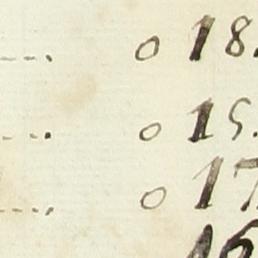 .... o 18.
.... o 15.
.... o 17
16